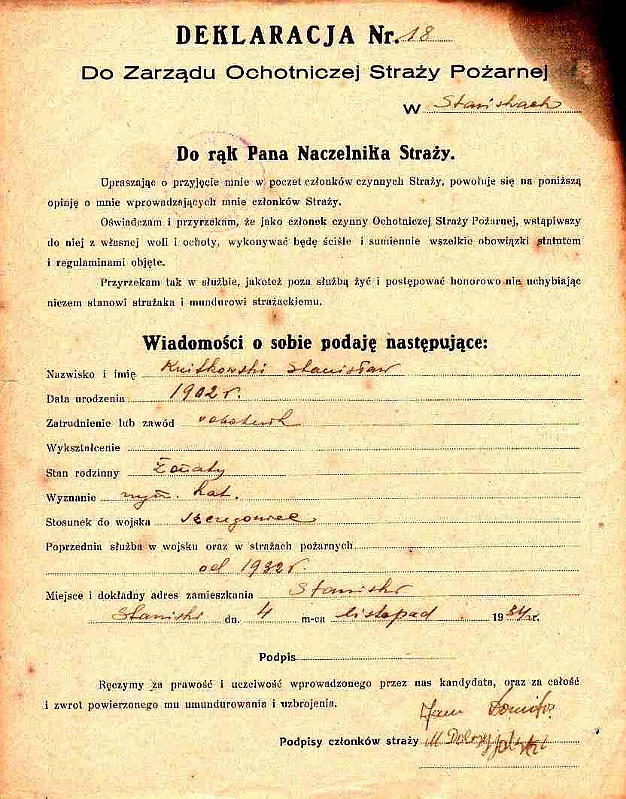 DEKLARACJA Nr. 18
Do Zarządu Ochotniczej Straży Pożarnej
w Staniskach
Do rąk Pana Naczelnika Straży.
Upraszając o przyjęcie mnie w poczet członków czynnych Straży, powołuję się na poniższą
opinję o mnie wprowadzających mnie członków Straży.
Oświadczam i przyrzekam, że jako członek czynny Ochotniczej Straży Pożarnej, wstąpiwszy
do niej z własnej woli i ochoty, wykonywać będę ściśle i sumiennie wszelkie obowiązki statutem
i regulaminami objęte.
Przyrzekam tak w służbie, jakoteż poza służbą żyć i postępować honorowo nie uchybiając
niczem stanowi strażaka i mundurowi strażackiemu.
Wiadomości o sobie podaję następujące:
Nazwisko i imię Kwitkowski Stanisław
Data urodzenia 1902 r.
Zatrudnienie lub zawód robotnik
Wykształcenie
Stan rodzinny Żonaty
Wyznanie rzym. kat.
Stosunek do wojska szeregowiec
Poprzednia służba w wojsku oraz w strażach pożarnych
od 1932 r.
Miejsce i dokładny adres zamieszkania Staniski
Staniski dn. 4 m-ca listopad 1934 r.
Podpis
Ręczymy za prawość i uczciwość wprowadzonego przez nas kandydata, oraz za całość
i zwrot powierzonego mu umundurowania i uzbrojenia.
Jan
Podpisy członków straży M